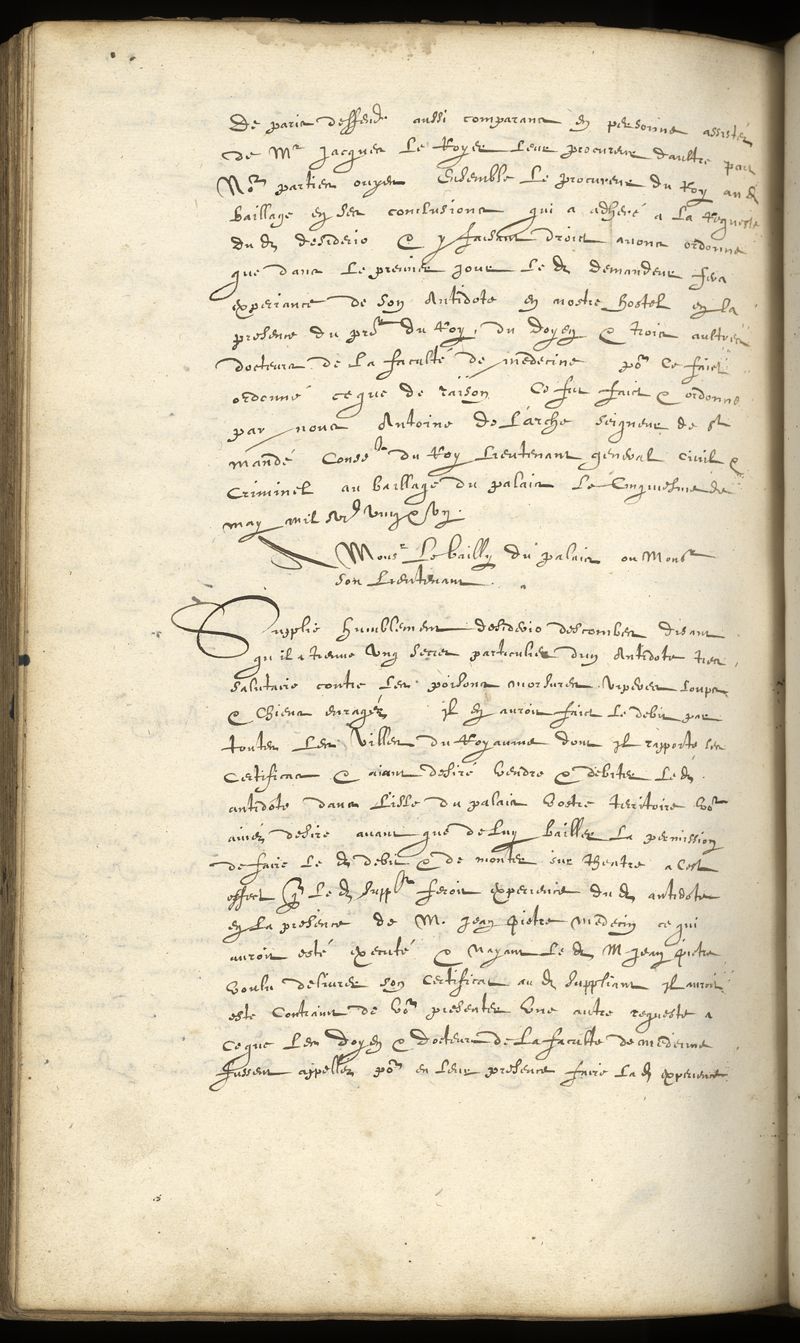 De paris deffend. aussi comparans en personne assistez
de Mr Jacques Le Royer leur procureur d'aultre part
Nos parties ouyes Ensemble Le procureur du Roy au d
Baillage en ses conclusions qui a adheré a La Requeste
du d desiderio & y faisant droict avons ordonne
que dans Le premier jour Le d demandeur fera
experiance de son Antidote en nostre hostel en la
presence du pror du Roy, du doyen & trois aultres
docteurs de La faculté de medecine por Ce faict
ordonné ce que de raison Ce fut faict & ordonne
par nous Antoine de L'arche seigneur de st
mandé Conser du Roy Lieutenant general Civil &
Criminel au baillage du palais Le Cinquiesme de
may mil
Monsr Le bailly du palais ou Monsr
son Lieutenant.
Supplie humblement desiderio descombes disant
qu il a trouve Ung secret particulier d'un Antidote tres
salutaire contre Les poisons morsures viperes loups
& Chiens enragez Il en auroit faict Le debit par
toutes Les Villes du Royaume dont Il rapporte ses
Certificas & aiant desiré Vendre & debiter Le d.
antidote dans L'isle du palais Vostre teritoire Vos
auriez desire avant que de Luy bailler La permission
de faire Le d debit & de monter sur theatre a Cest
effect que Le d Suppt feroit experience du d antidote
en La presence de M. Jean Pietre medecin ce qui
auroit esté executé & N'ayant Le d M Jean Pietre
Voulu delivrer son Certificat au d suppliant Il auroit
este Contrainct de Vos presenter Une autre requeste a
Ce que Les doyen & docteurs de La faculte de medecine
fussent appellez por en leur presence faire La d experience